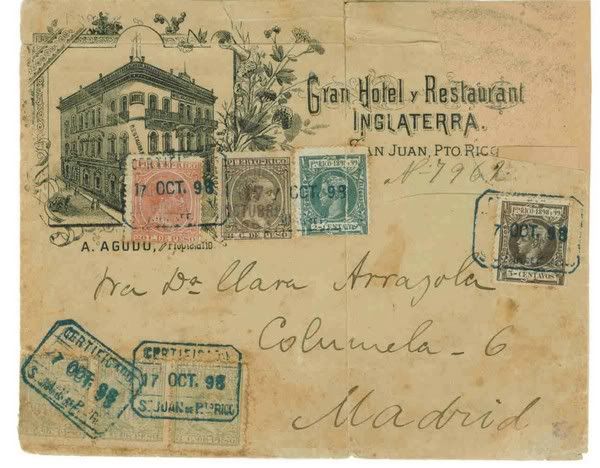 Gran Hotel y Restaurant
INGLATERRA.
SAN JUAN, PTO RICO
RESTAURANT
Nº 7962
CERTIFICADO
17 OCT. 98
PUERTO-RICO
PTO RICO 1898 Y 99
17 OCT. 98
PTO RICO-1898 Y 99
5-CENTAVOS
A. AGUDO, Propietario
Sra Da. Clara Arrazola
Columela - 6
Madrid
CERTIFICADO
17 OCT. 98
S. JUAN DE P. RICO
CERTIFICADO
17 OCT. 98
S. JUAN DE P. RICO